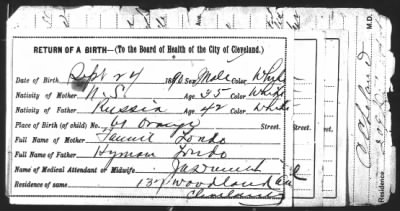 RETURN OF A BIRTH—(To the Board of Health of the City of Cleveland.)
Date of Birth Sept 24 1890 Sex Male Color White
Nativity of Mother U.S. Age 35 Color White
Nativity of Father Russia Age 42 Color White
Place of Birth (of child) No. 61 Orange Street.
Full Name of Mother Fannie Londo Street.
Full Name of Father Hyman Londo
Name of Medical Attendant or Midwife
Residence of same Woodland Ave
M.D.
Residence